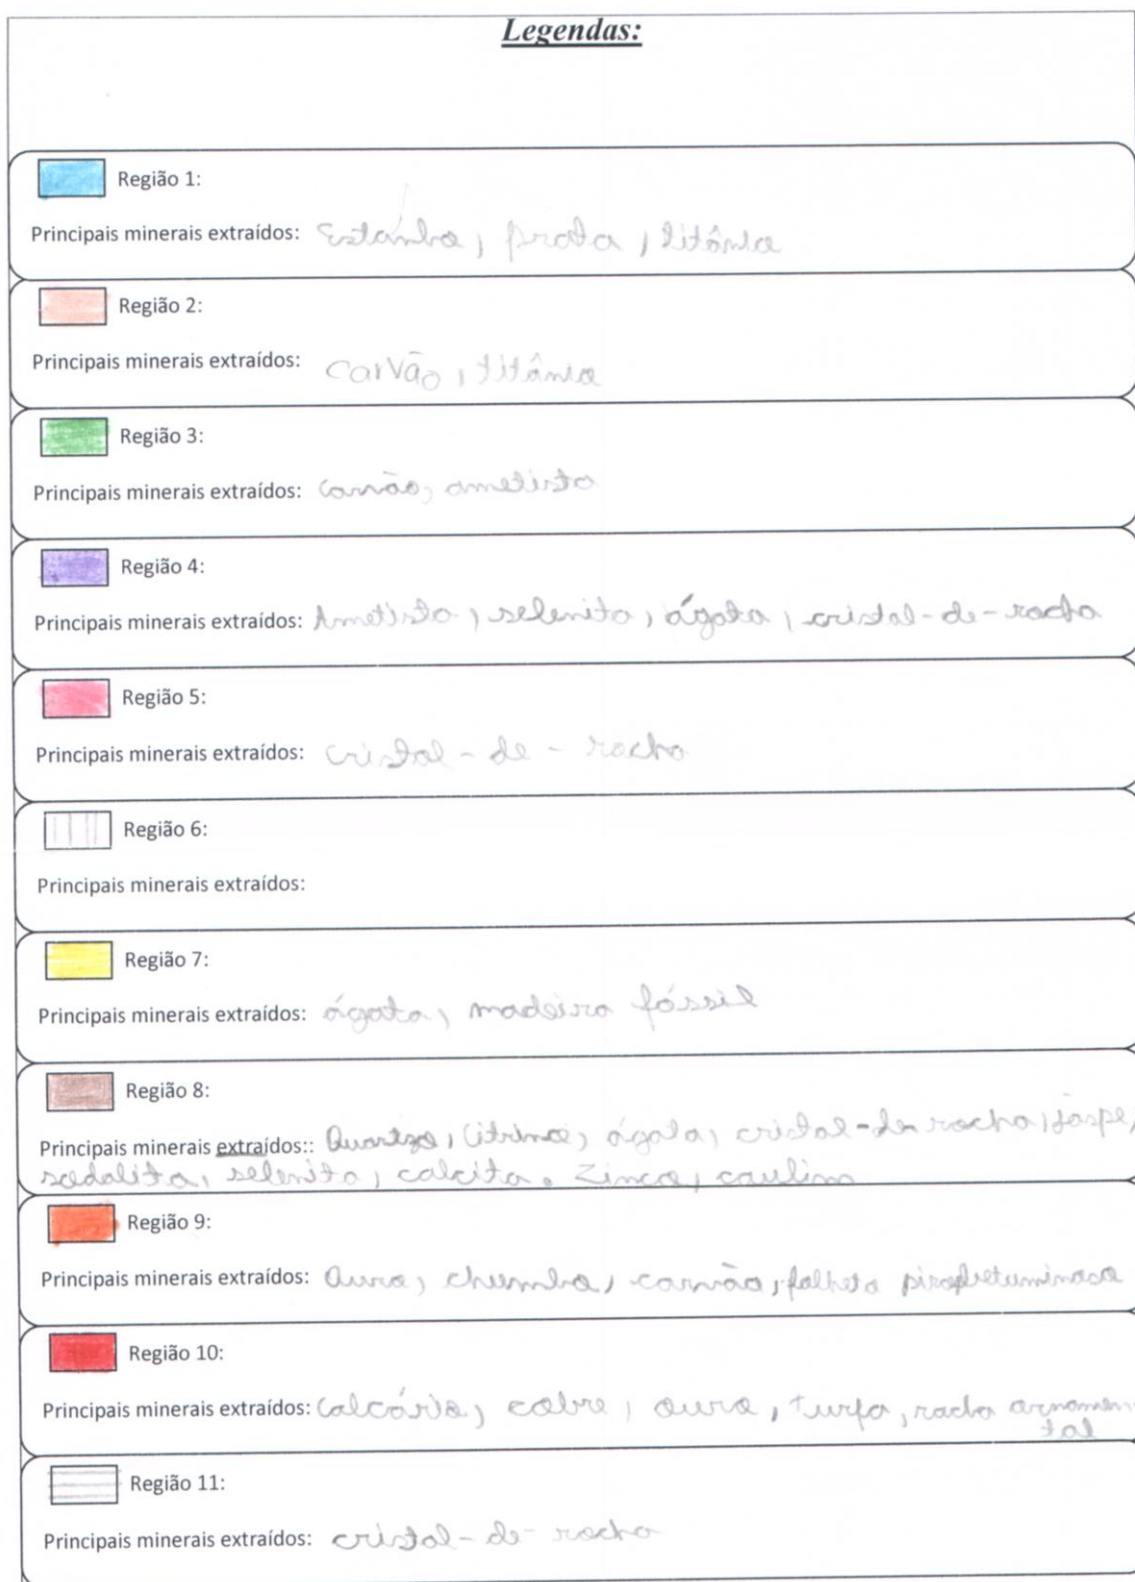 Legendas:
Região 1:
Principais minerais extraídos: Estanho, prata, titânio
Região 2:
Principais minerais extraídos: carvão, titânio
Região 3:
Principais minerais extraídos: carvão, ametista
Região 4:
Principais minerais extraídos: Ametista, selenito, ágata, cristal-de-rocha
Região 5:
Principais minerais extraídos: cristal-de-rocha
Região 6:
Principais minerais extraídos:
Região 7:
Principais minerais extraídos: ágata, madeira fóssil
Região 8:
Principais minerais extraídos:: Quartzo, Citrino, ágata, cristal-de rocha, jaspe,
sodalita, selenito, calcita. Zinco, caulim
Região 9:
Principais minerais extraídos: Ouro, chumbo, carvão, folhelo
Região 10:
Principais minerais extraídos: Calcário, cobre, ouro, turfa, rocha ornamen
tal
Região 11:
Principais minerais extraídos: cristal-de-rocha